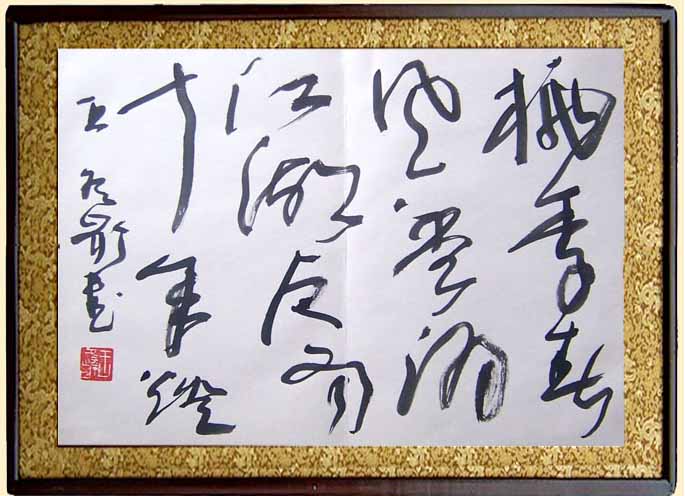 桃李春
风一杯酒
江湖夜雨
十年灯
王